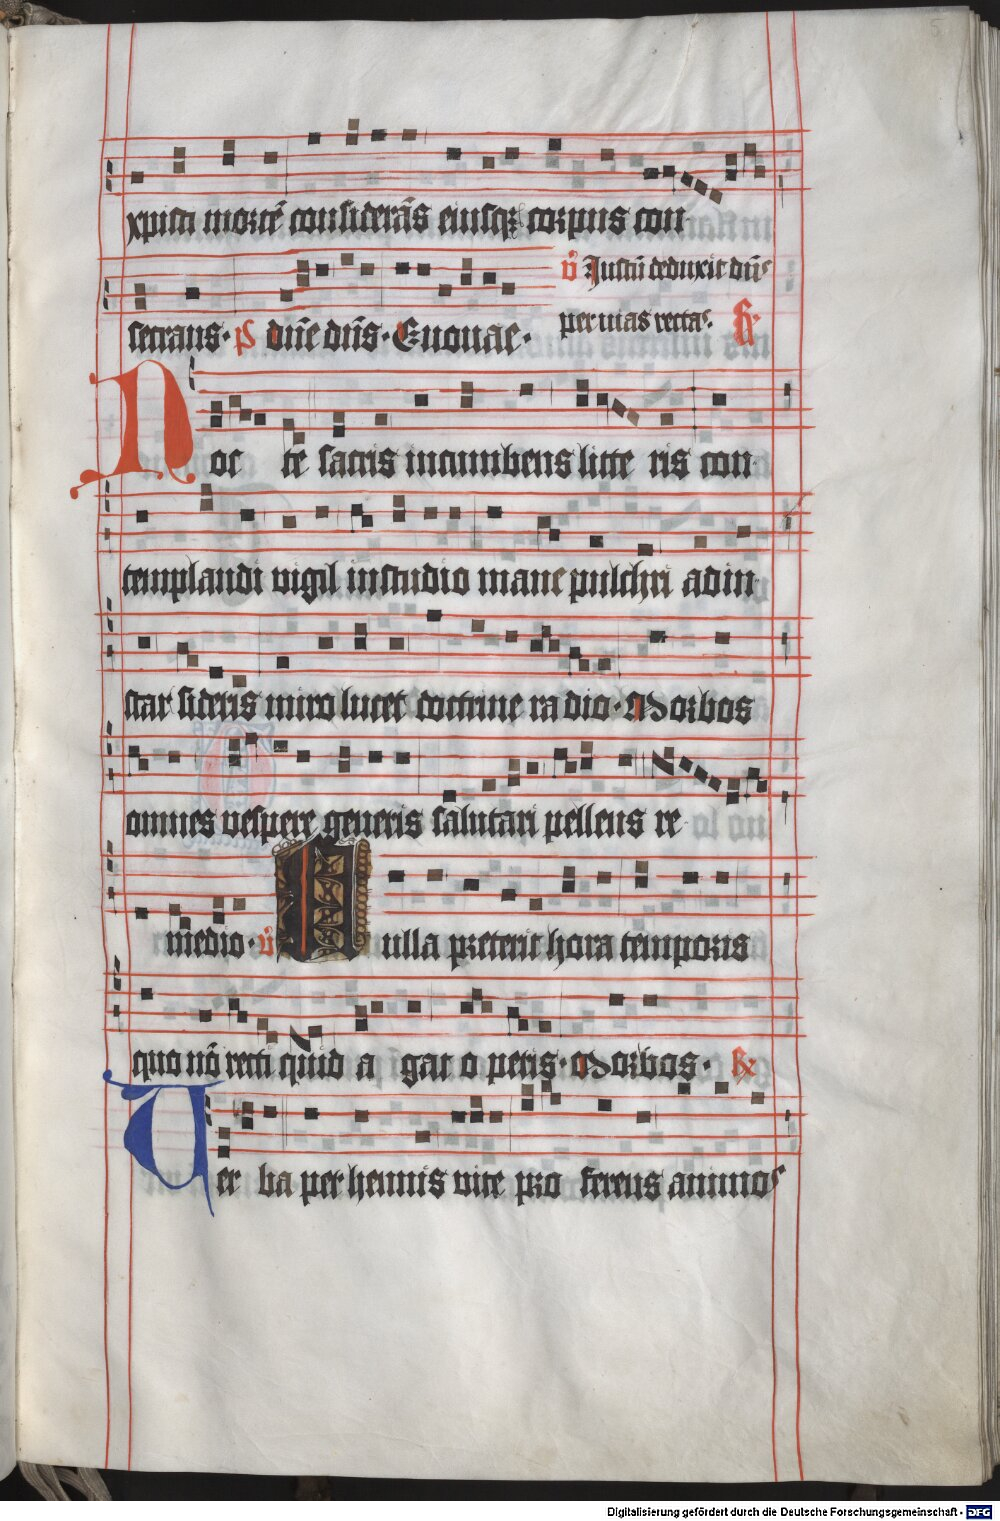 5
xpisti mortē considerās eiusqz corpus con
secrans · p̄s dn̄e dn̄s · Euouae · v̄ Justū deduxit dn̄s
per uias rectas · R̄
Noc te sacris incumbens litte ris con
templandi vigil in studio mane pulchri ad in
star sideris miro lucet doctrine ra dio · Morbos
omnes vespere generis salutari pellens re
medio · v̄ Nulla preterit hora temporis
quo nō recti quid a gat o peris · Morbos · R̄
Uer ba perhennis vite pro ferens animos
Digitalisierung gefördert durch die Deutsche Forschungsgemeinschaft - DFG